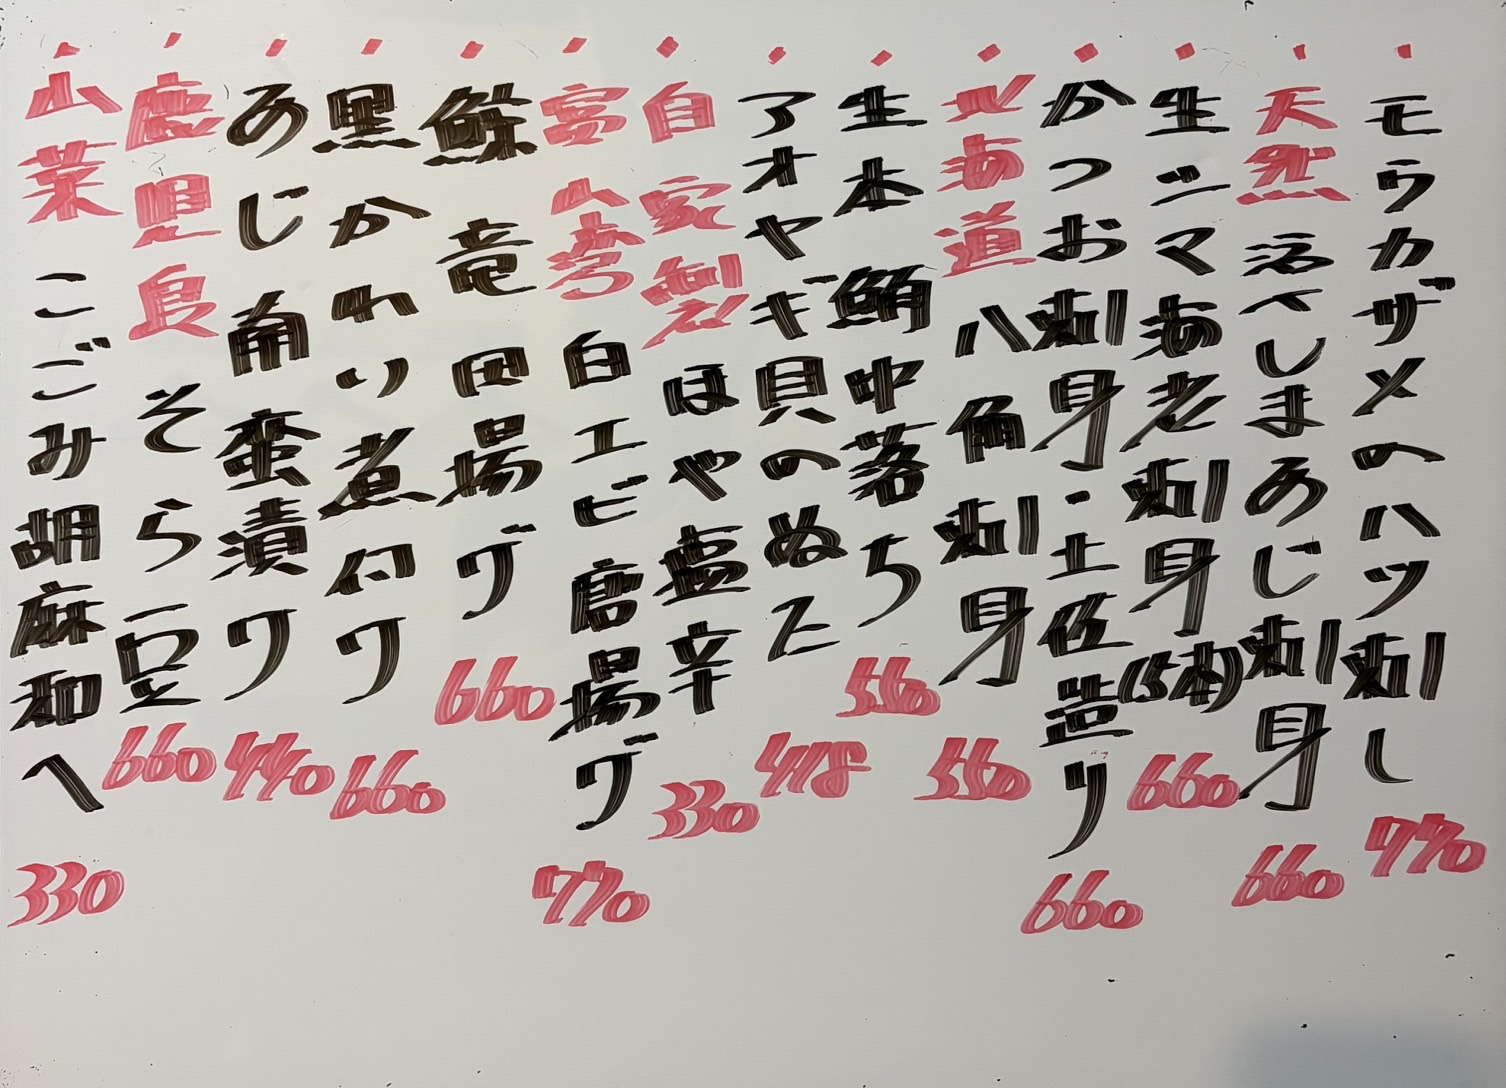 ・モウカザメのハツ刺し 770
・天然 活〆しまあじ刺身 660
・生シマ海老刺身(5本) 660
・かつお刺身・土佐造り 660
・北海道 八角刺身 550
・生本鮪中落ち 550
・アオヤギ貝のぬた 418
・自家製 ほや塩辛 330
・富山湾 白エビ唐揚ゲ 770
・鯨竜田揚ゲ 660
・黒かれい煮付ケ 660
・あじ南蛮漬ケ 440
・鹿児島 そら豆 660
・山菜 こごみ胡麻和へ 330